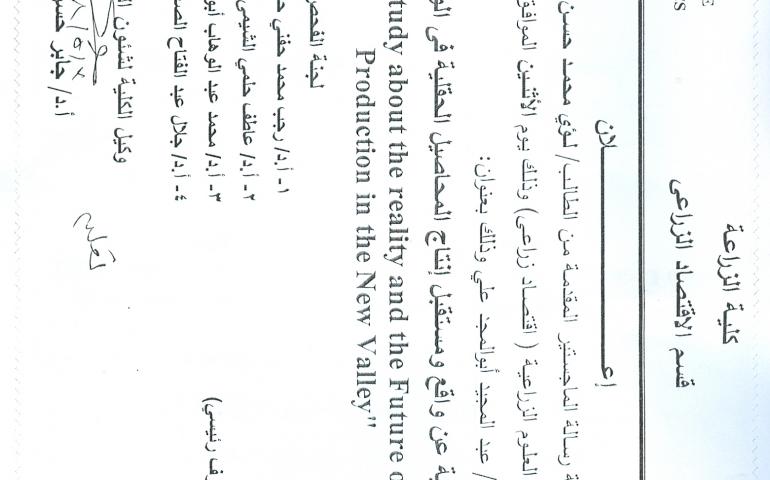 كلية الزراعة
قسم الاقتصاد الزراعى
إعـــــــــــلان
رسالة الماجستير المقدمة من الطالب/ لؤي محمد حسن
العلوم الزراعية ( اقتصاد زراعى) وذلك يوم الأثنين الموافق
/ عبد المجيد أبوالمجد علي وذلك بعنوان:
ية عن واقع ومستقبل إنتاج المحاصيل الحقلية في الو
tudy about the reality and the Future o
Production in the New Valley"
لجنة الفحص
١- أ.د/ رجب محمد حفني
٢- أ.د/ عاطف حلمي الشيمي
٣- أ.د/ محمد عبد الوهاب أبو
٤- أ.د/ جلال عبد الفتاح الص
ف رئيسي)
وكيل الكلية لشئون
أ.د/ جابر